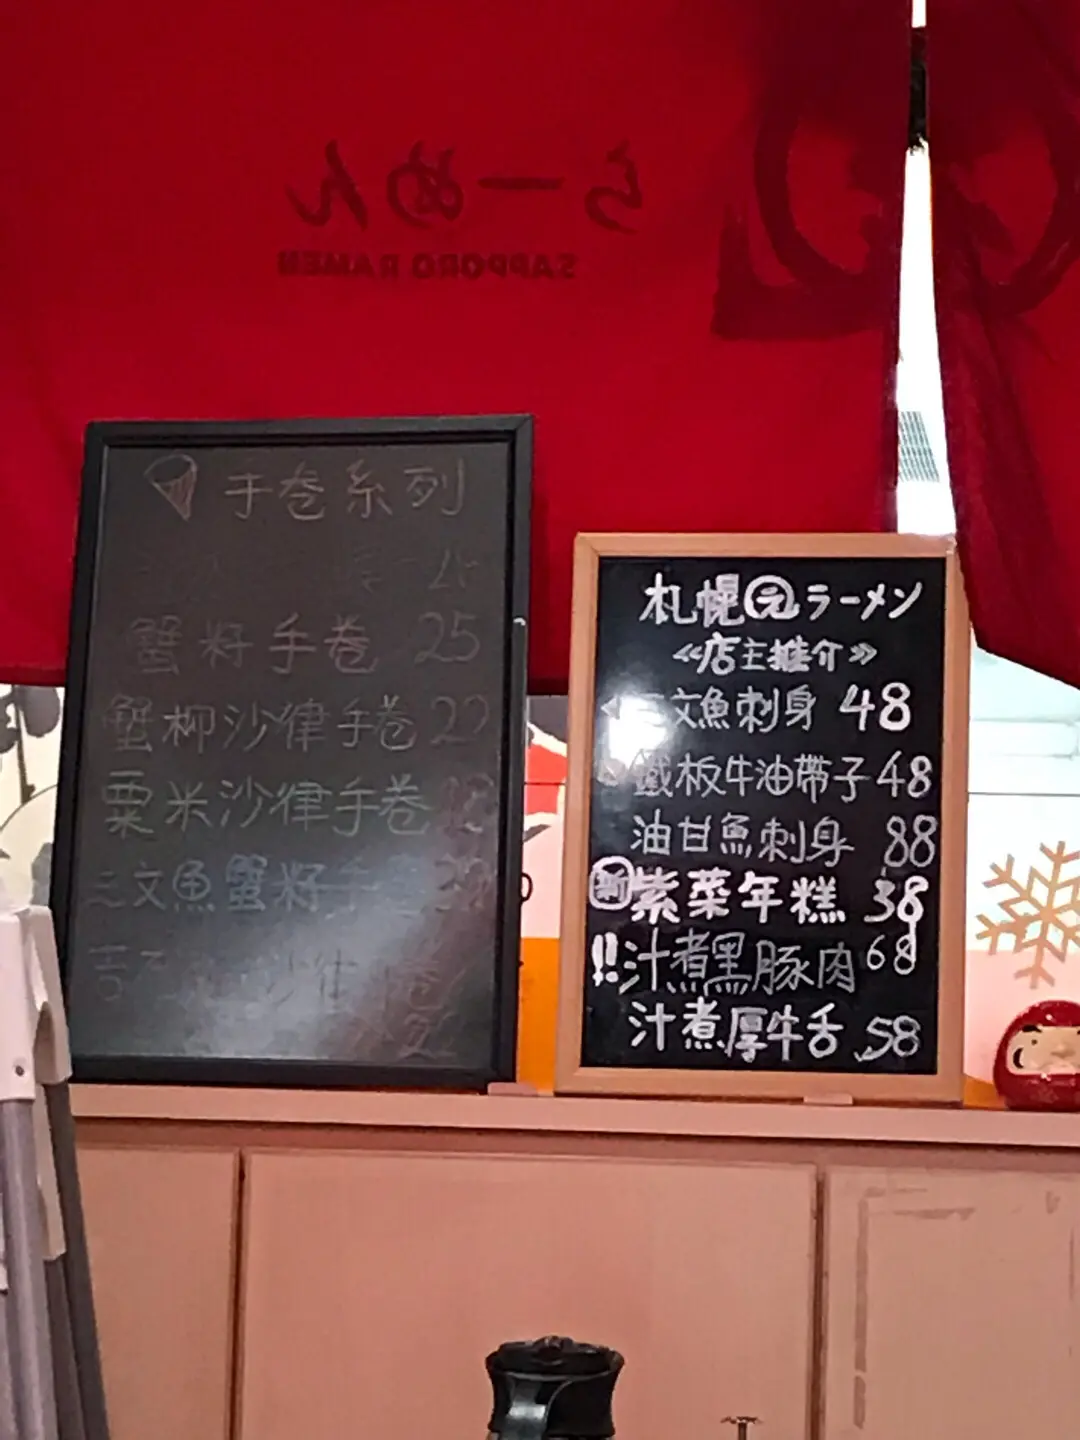 らーめん
SAPPORO RAMEN
手巻系列
蟹籽手巻 25
蟹柳沙律手巻 22
粟米沙律手巻
三文魚蟹籽
札幌元ラーメン
≪店主推介≫
三文魚刺身 48
鐵板牛油帶子 48
油甘魚刺身 88
新 紫菜年糕 38
!!汁煮黑豚肉 68
汁煮厚牛舌 58